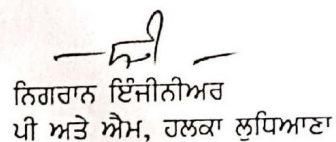 ਨਿਗਰਾਨ ਇੰਜੀਨੀਅਰ
ਪੀ ਅਤੇ ਐਮ, ਹਲਕਾ ਲੁਧਿਆਣਾ